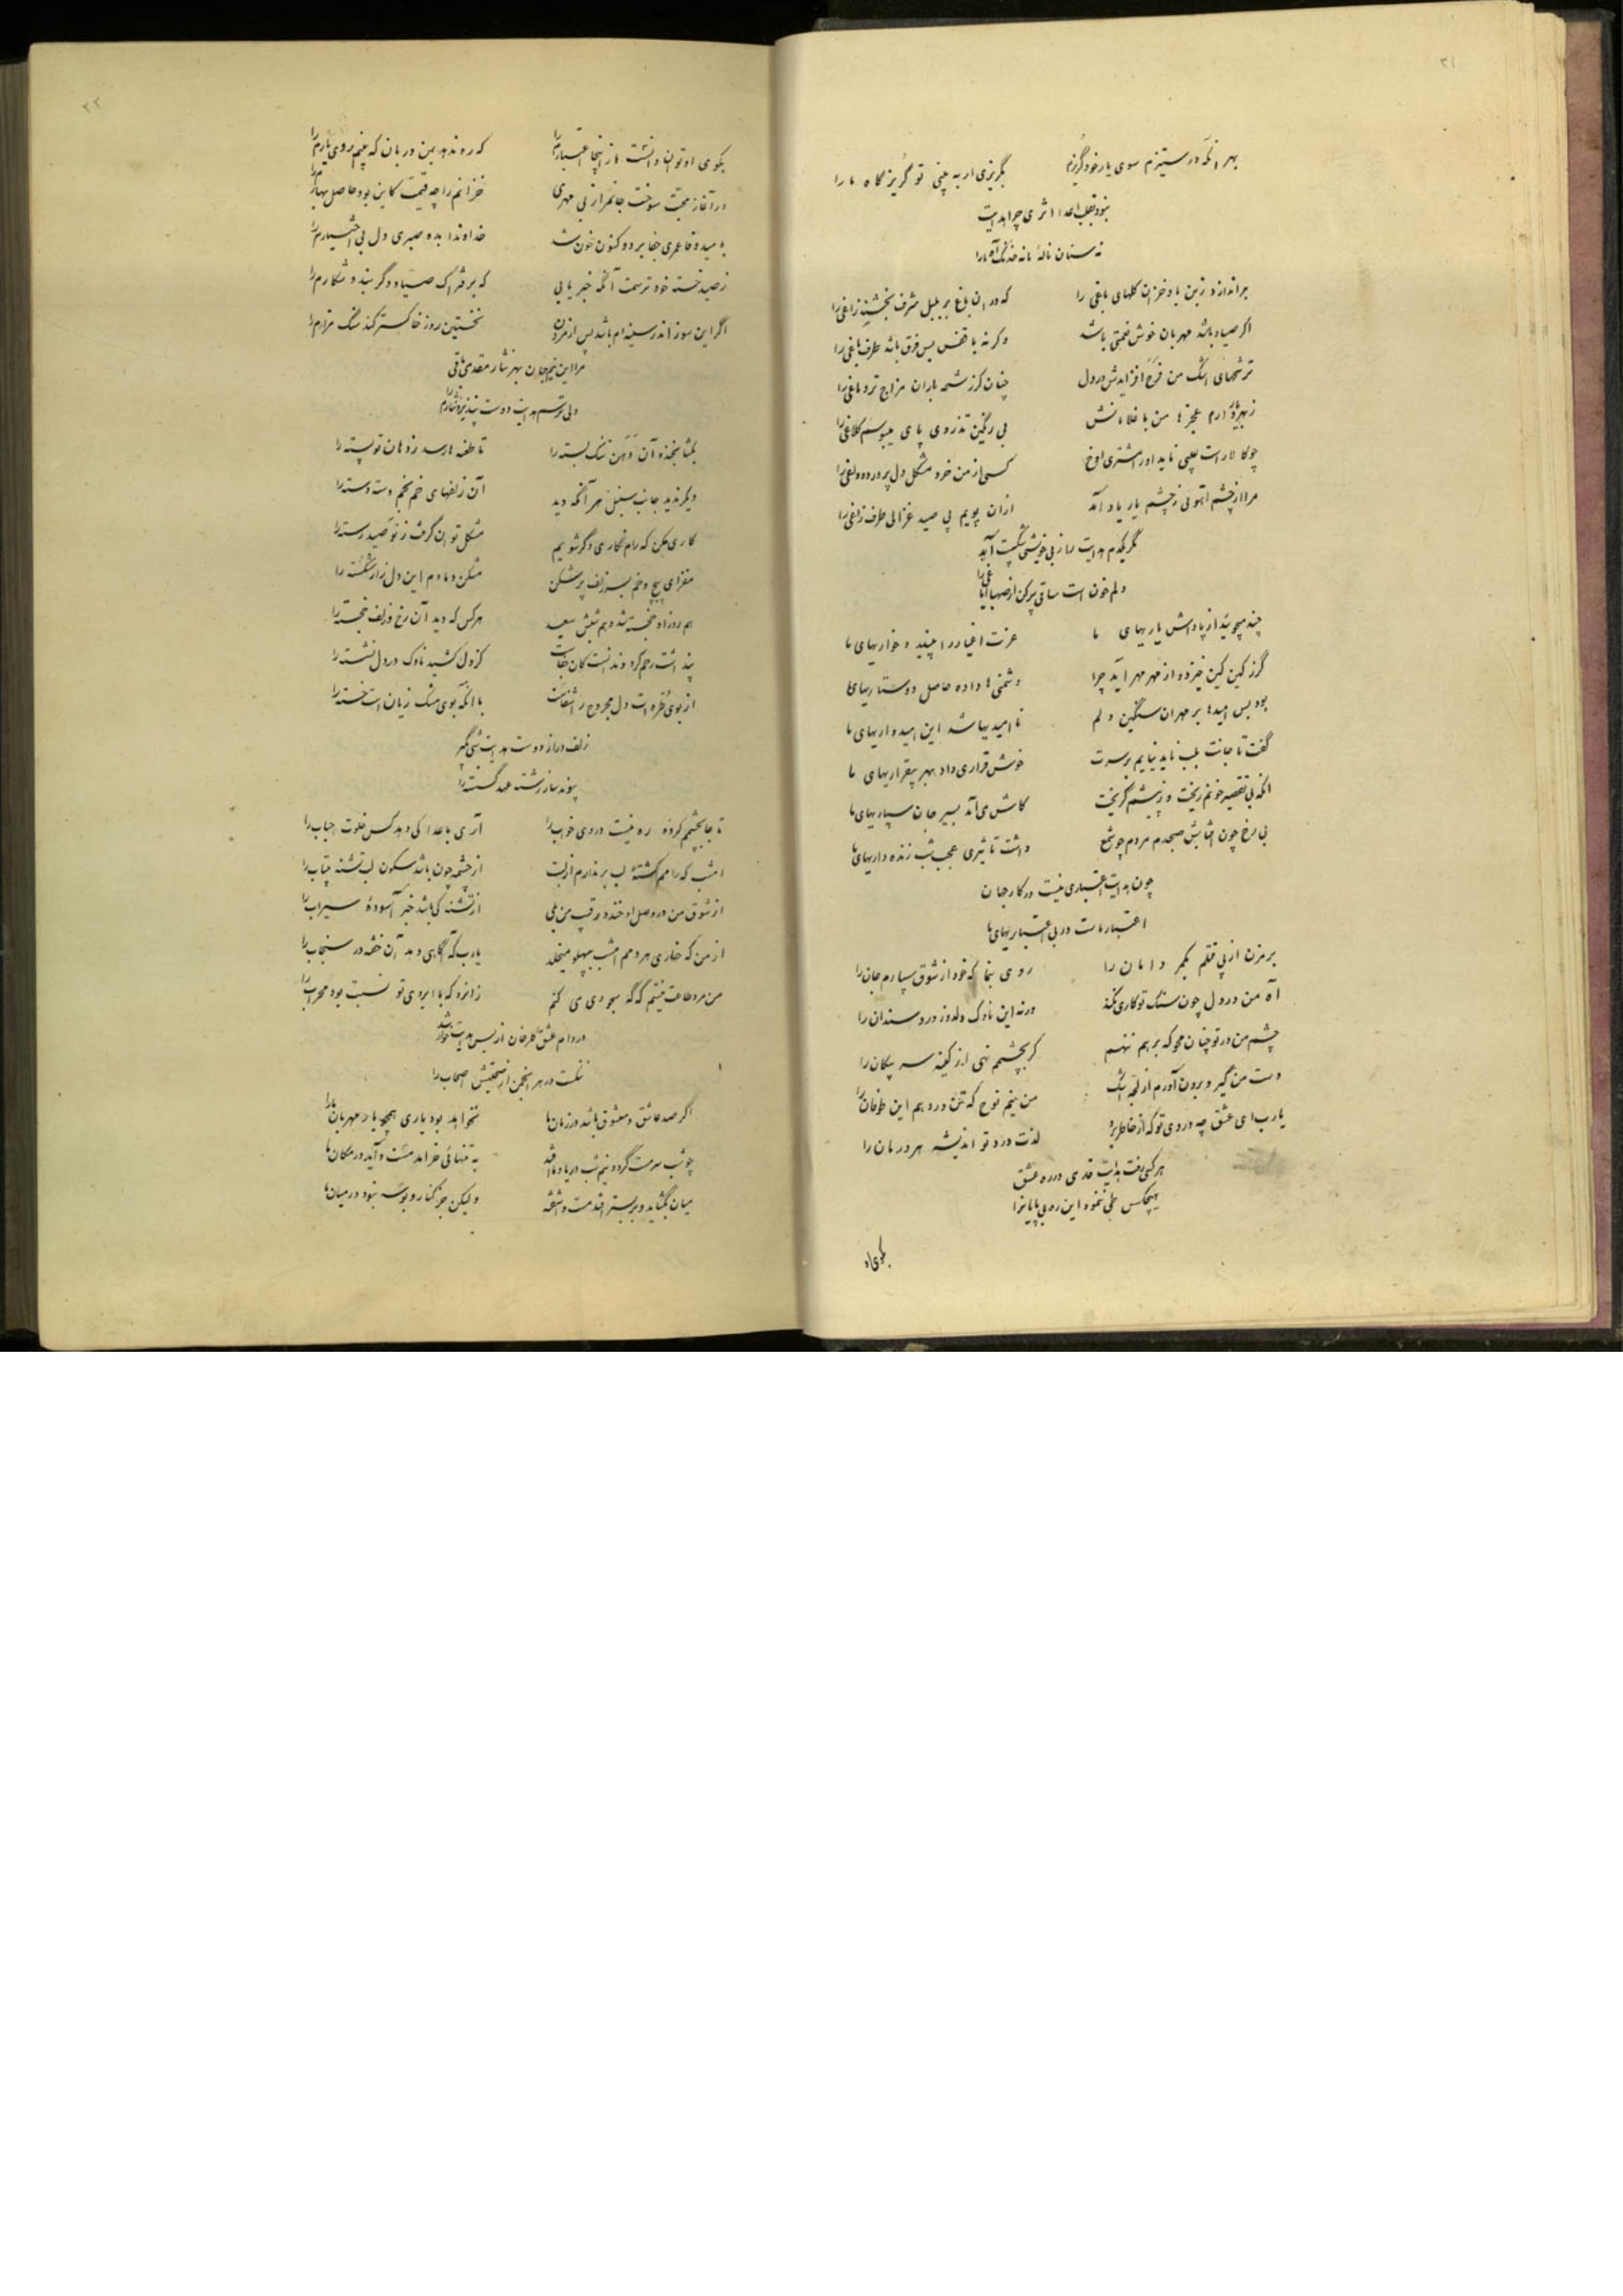 ۲۱
بهر آنکه در ستیزم سوی یار خود گریزم بگریزی ار به بینی تو گریزگاه ما را
نبود بقلب اعدا اثری چرا هدایت
نه سنان نالهٔ ما نه خدنگ آه ما را
براندازد زبن باد خزان گلهای باغی را که در آن باغ بر بلبل شرف بخشند زاغی را
اگر صیاد باشد مهربان خوش نعمتی باشد وگرنه با قفس بس فرق باشد طرف باغی را
ترشحهای اشک من فرح افزایدش در دل چنان کز رشحه باران مزاج تر دماغی را
ز بهر یار دارم عجزها من با غلامانش پی رنگین تذروی پای میبوسم کلاغی را
چو کالا راست عیبی ناید او را مشتری اوخ کسی از من خرد مشکل دل پر درد و داغی را
مرا از چشم آهوئی ز چشم یار یاد آمد از آن پویم پی صید غزالی طرف راغی را
مگر یکدم هدایت را ز بی‌خویشی شکیب آید
دلم خون است ساقی پر کن از صهبا ایاغی را
چند میجوئید از پاداش یاریهای ما عزت اغیار را بینید و خواریهای ما
گرز کین کین خیزد و از مهر مهر آید چرا دشمنی‌ها داده حاصل دوستداریهای ما
بود بس امیدها بر مهر آن سنگین دلم ناامیدیها شد این امیدواریهای ما
گفت تا جانت بلب ناید نیایم بر سرت خوش قراری داد بهر بیقراریهای ما
آنکه بی تقصیر خونم ریخت و ز پیشم گریخت کاش می‌آمد بسیر جان سپاریهای ما
بی رخ چون آفتابش صبحدم مردم چو شمع داشت تاثیری عجب شب زنده داریهای ما
چون هدایت اعتباری نیست در کار جهان
اعتبار ماست در بی اعتباریهای ما
بر مزن از پی قتلم بکمر دامان را روی بنما که خود از شوق سپارم جان را
آه من در دل چون سنگ تو کاری نکند ورنه این ناوک دلدوز درد سندان را
چشم من در تو چنان محو که بر هم ننهم گر بچشمم نهی از کینه سر پیکان را
دست من گیر و برون آورم از لجه اشک من نیم نوح که تن در دهم این طوفان را
یارب ای عشق چه دردی تو که از خاطر برد لذت درد تو اندیشه هر درمان را
هر کسی رفت هدایت قدمی در ره عشق
هیچکس طی ننمود این ره بی پایان را
بکوی او
۲۲
بکوی او توان دانست باز اینجا اعتبارم را که ره ندهد بمن دربان که بینم روی یارم را
در آغاز محبت سوخت جانم را ز بی مهری خزانم را چه قیمت کاین بود حاصل بهارم را
بامید وفا عمری جفا برد و کنون خون شد خداوندا بده صبری دل بی اختیارم را
ز صید خسته خود ترسمت آنگه خبر یابی که بر فتراک صیاد دگر بیند شکارم را
اگر این سوز اندر سینه‌ام باشد پس از مردن نخستین روز خاکستر کند سنگ مزارم را
مرا این نیم جان بهر نثار مقدمی باقی
ولی ترسم هدایت دوست نپذیرد نثارم را
بگشا بخنده آن دهن تنگ بسته را تا طعنه‌ها رسد ز دهان تو پسته را
دیگر ندید جانب سنبل هر آنکه دید آن زلفهای خم بخم دسته دسته را
کاری مکن که رام نگاری دگر شویم مشکل توان گرفت ز نو صید رسته را
مفزای پیچ و خم بسر زلف پر شکن مشکن دمادم این دل زار شکسته را
هم روز او خجسته شد و هم شبش سعید هر کس که دید آن رخ و زلف خجسته را
پنداشت رحم کرد و ندانست کان جفاست کز دل کشید ناوک در دل نشسته را
از بوی طره است دل مجروح را شفا با آنکه بوی مشک زیان است خسته را
زلف دراز دوست هدایت شبی بگیر
پیوند ساز رشته عهد گسسته را
تا جا بچشمم کرده‌ه ره نیست در وی خواب را آری با عدا کی دهد کس خلوت احباب را
امشب که رامم گشتهٔ لب بر ندارم از لبت از چشمه چون باشد سکون لب تشنه بیتاب را
از شوق من در وصل او خندد رقیب من بلی از تشنه کی باشد خبر آسوده سیراب را
از من که خاری هر دمم امشب بپهلو میخلد یارب که آگاهی دهد آن خفته در سنجاب را
من مرد طاعت نیستم که گه سجودی می کنم زانرو که با ابروی تو نسبت بود محراب را
در دام عشق گلرخان از بس هدایت خوار شد
ننگست در هر انجمن از صحبتش اصحاب را
اگر صد عاشق و معشوق باشد در زمان‌ها نخواهد بود یاری همچو یار مهربان ما را
چو شب سرمست گردد نیم شب در یاد ما افتد به تنهائی خرامد مست و آید در مکان ما
میان بگشاید و بر بستر افتد مست و آشفته ولیکن جز کنار و بوسه نبود در میان ما